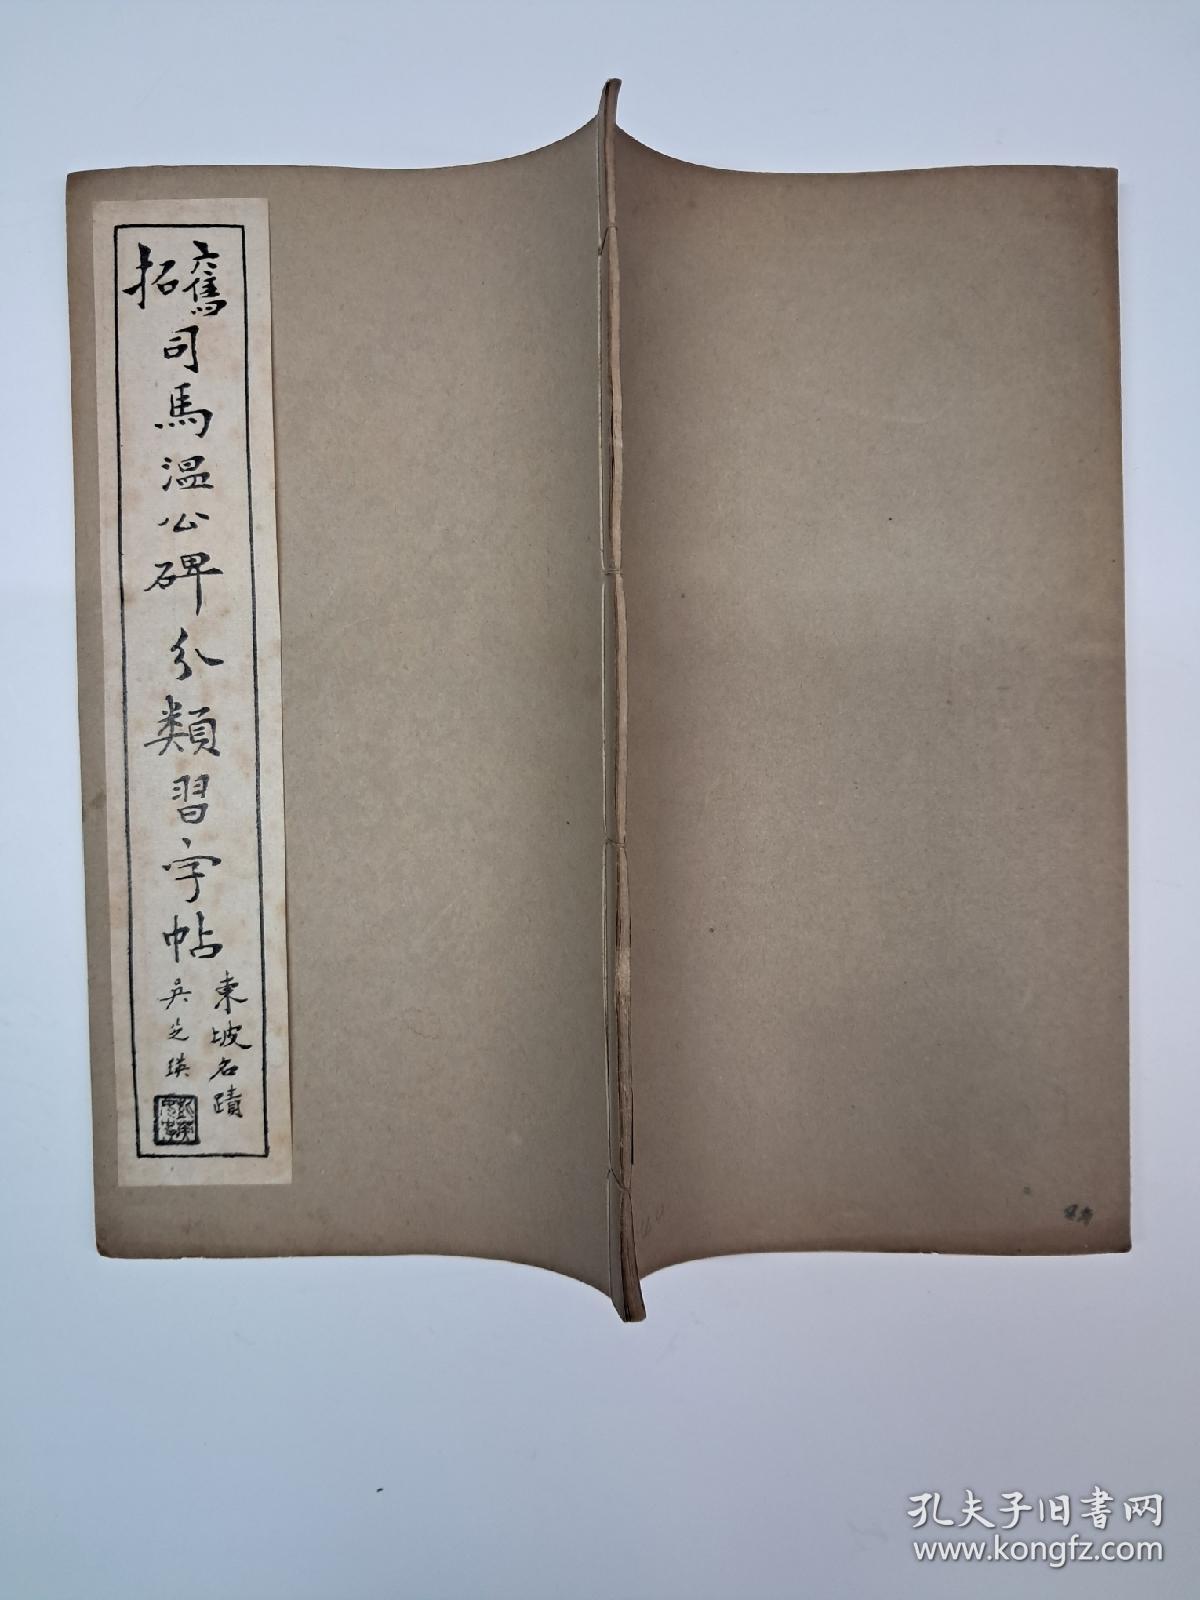 舊拓司馬温公碑分類習字帖
東坡名蹟
吳芝瑛
孔夫子旧书网
www.kongfz.com